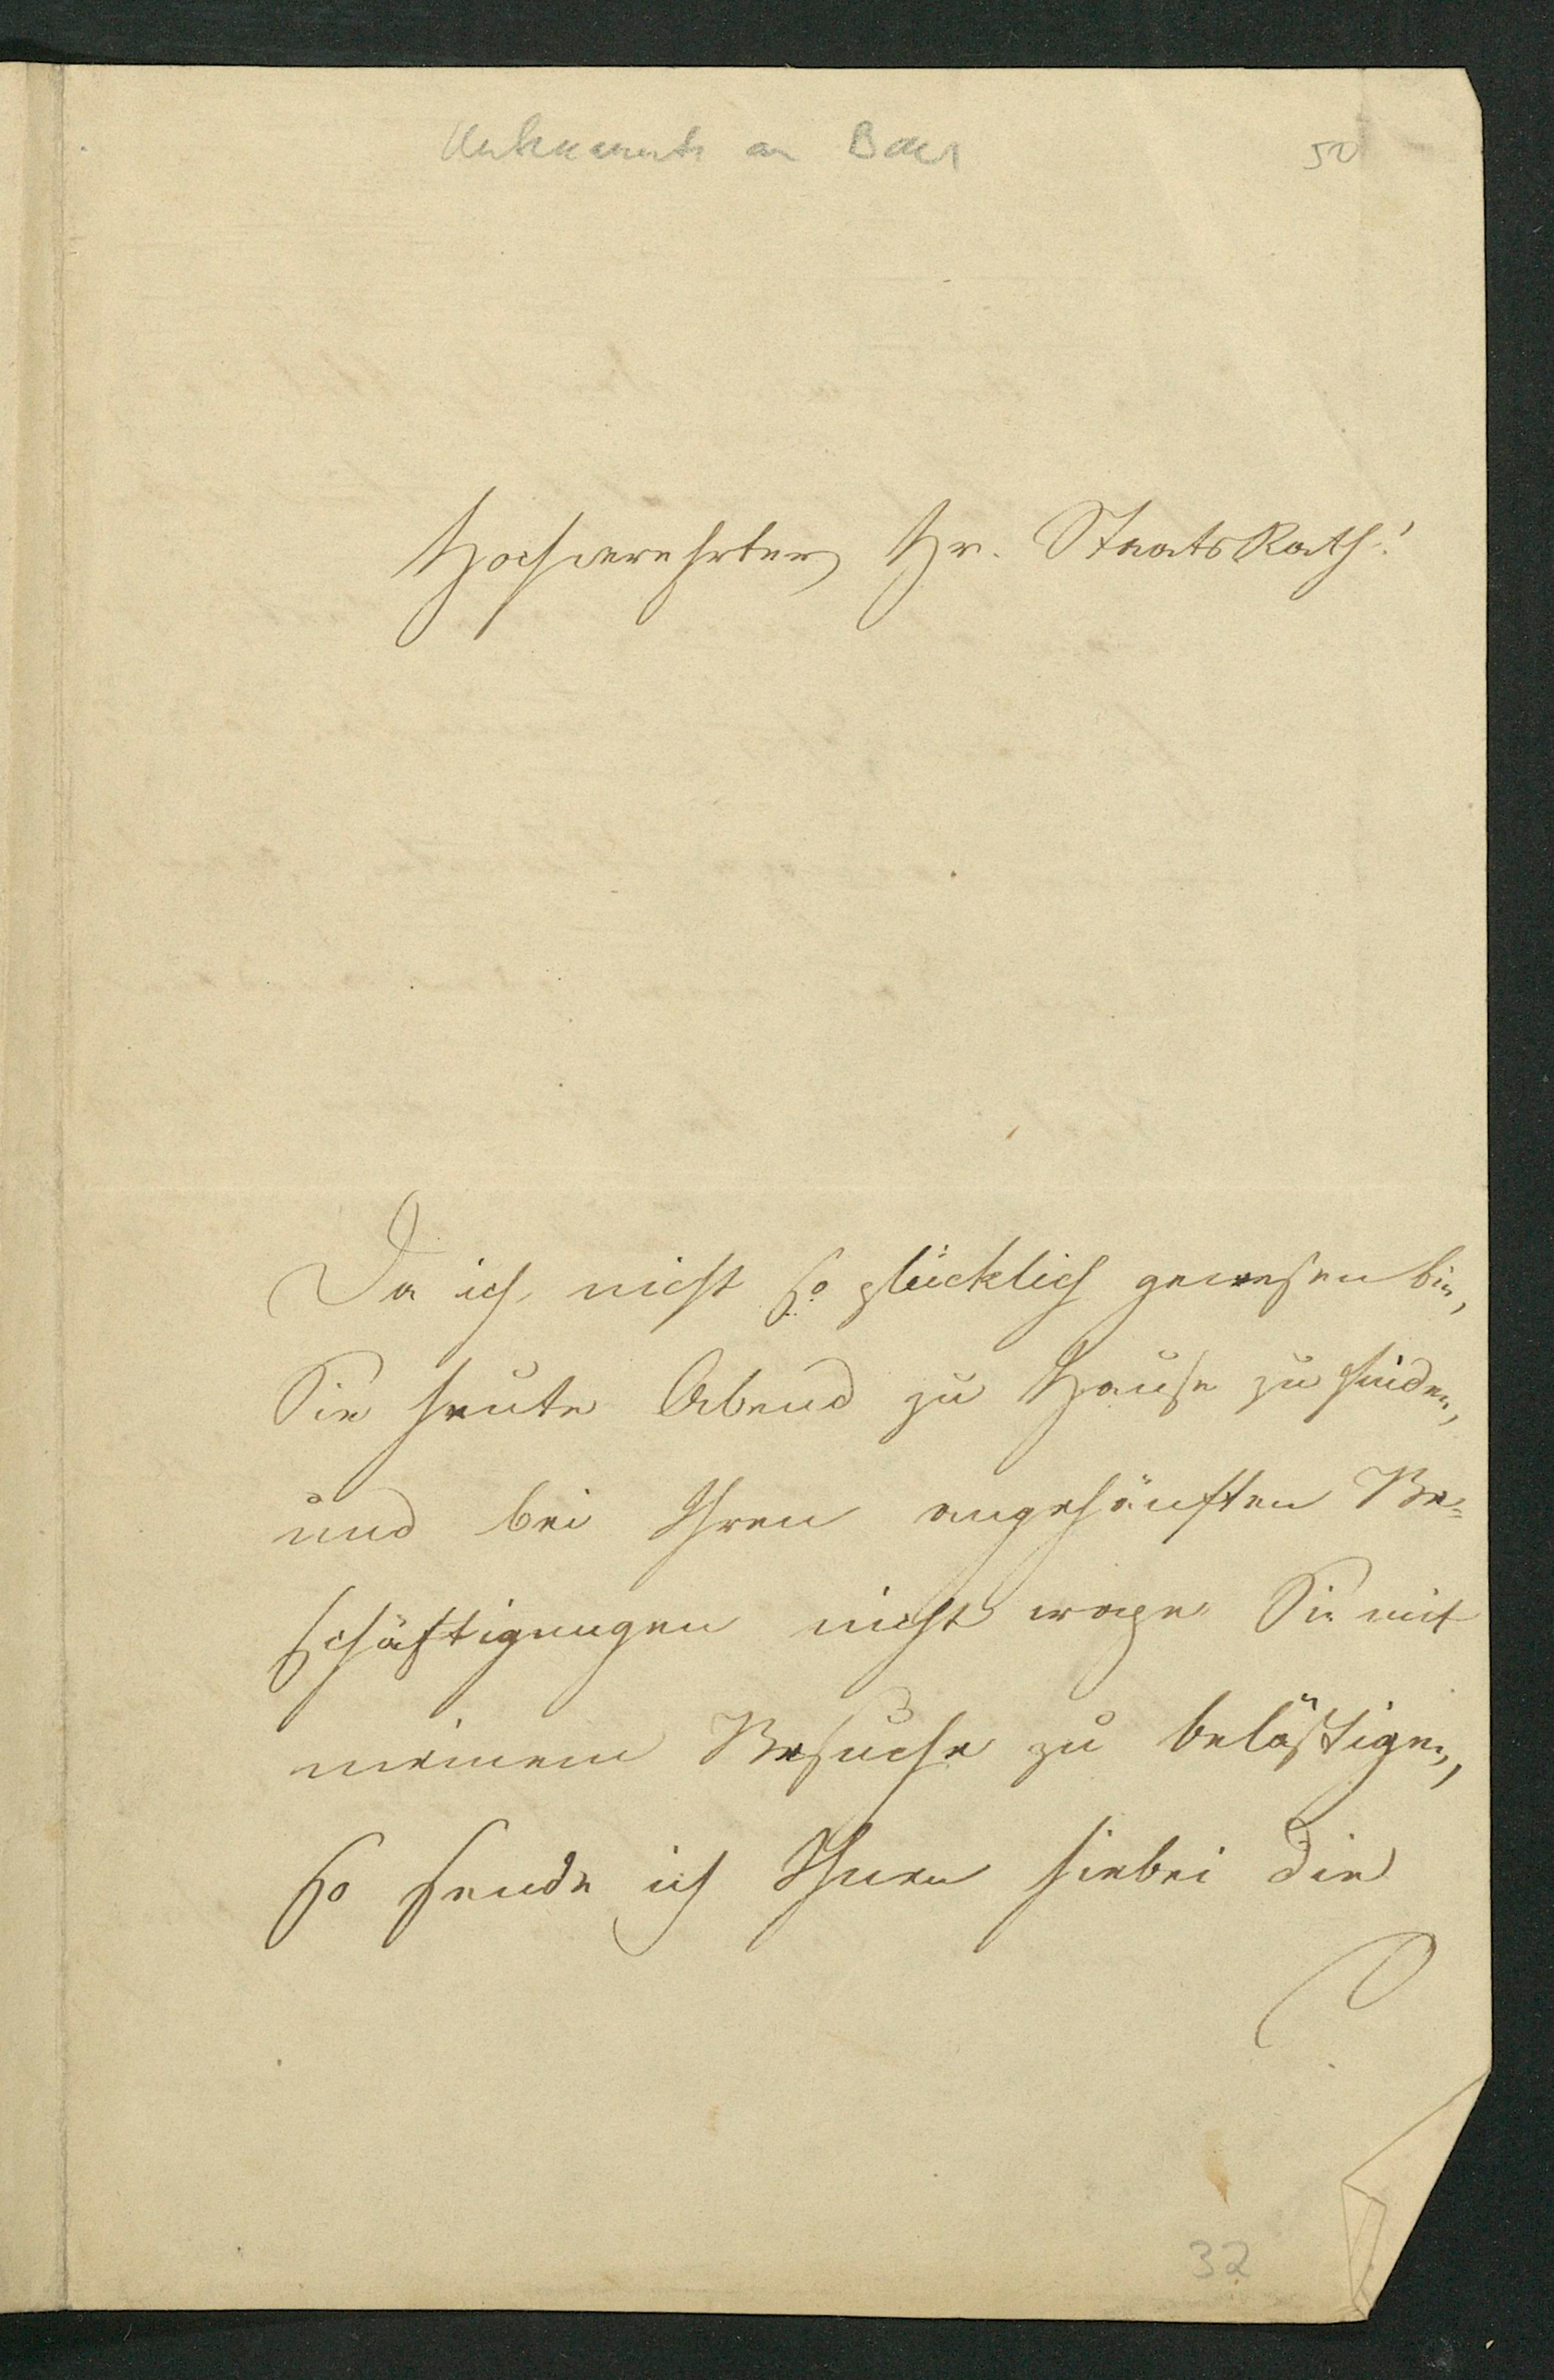 Unbekannte an Baer
50
Hochverehrter Hr. StaatsRath!
Da ich nicht so glücklich gewesen bin,
Sie heute Abend zu Hause zu finden,
und bei Ihren angehäuften Be=
schäftigungen nicht wage Sie mit
meinem Besuche zu belästigen,
so sende ich Ihnen hiebei die
32